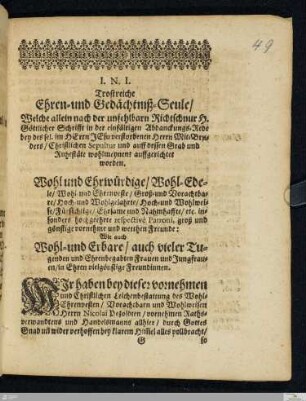 49
I. N. I.
Trostreiche
Ehren-und Gedächtniß-Seule/
Welche allein nach der unfehlbarn Richtschnur H.
Göttlicher Schrifft in der einfältigen Abdanckungs-Rede
bey des sel. im HErrn JEsu verstorbenen Herrn
Christlichen Sepultur und auff dessen Grab und
Ruhestäte wohlmeynent auffgerichtet
worden.
Wohl und Ehrwürdige/ Wohl-Ede-
le/ Wohl und Ehrenveste/ Groß und Vorachtba-
re/ Hoch-und Wohlgelahrte/ Hoch-und Wohlwei-
se/ Fürsichtige/ Ehrsame und Nahmhaffte/ etc. in-
sonders hochgeehrte respectivè Patroni, groß und
günstige vornehme und werthen Freunde:
Wie auch
Wohl-und Erbare/ auch vieler Tu-
genden und Ehrenbegabten Frauen und Jungfrau-
en/ in Ehren vielgönstige Freundinnen.
WIr haben bey dieser vornehmen
und Christlichen Leichenbestattung des Wohl-
Ehrenvesten/ Vorachtbarn und Wohlweisen
Herrn Nicolai vornehmen Raths-
verwandtens und Handelsmanns allhier/ durch Gottes
Gnad und wider verhoffen bey klarem Himmel alles vollbracht/
G so